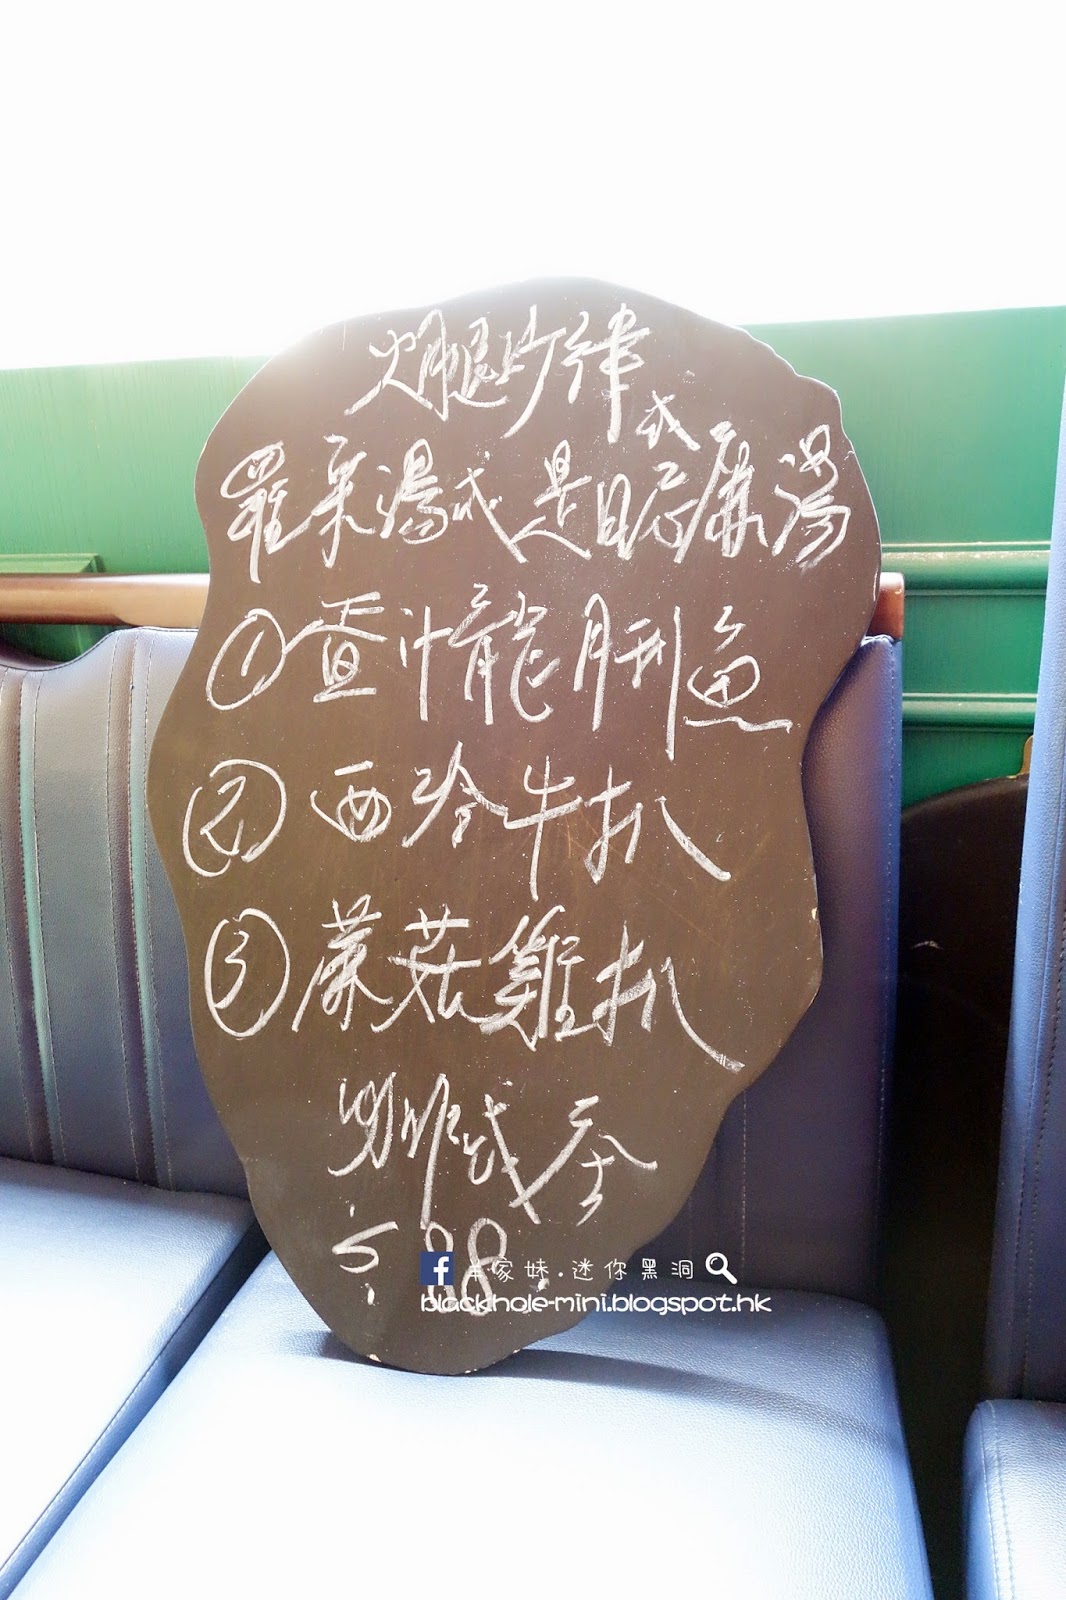 火腿沙律
或
羅宋湯或是日忌廉湯
①香汁龍脷魚
②西冷牛扒
③蘑菇雞扒
咖啡或茶
$88
家妹.迷你黑洞
blackhole-mini.blogspot.hk